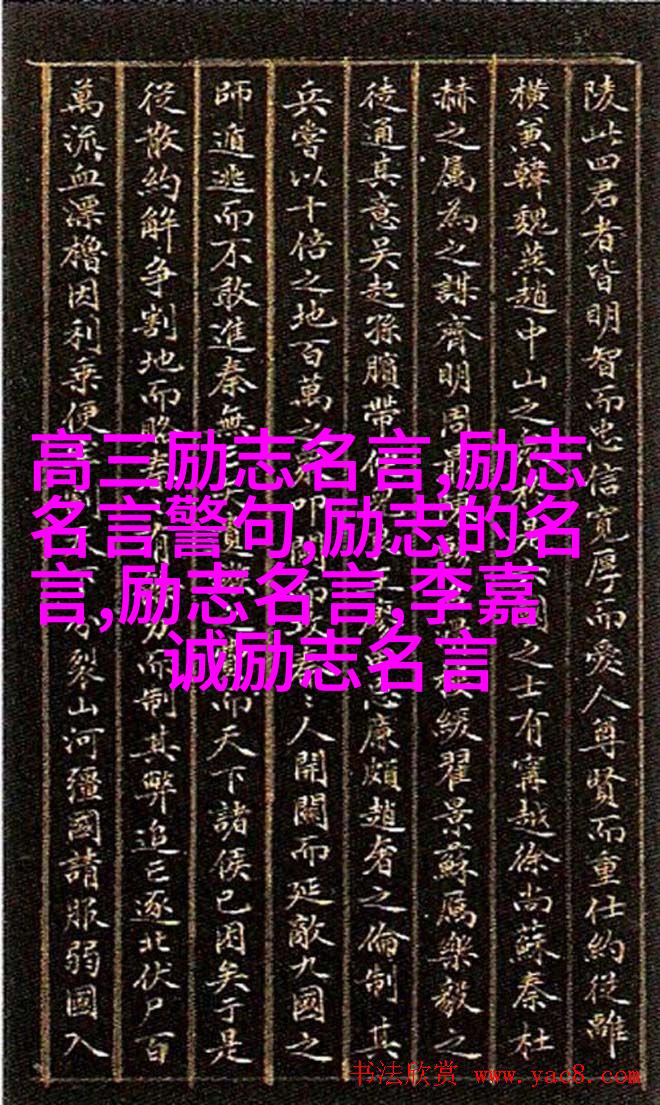 陵此四君者皆明智而忠信寬厚而愛人尊賢而重仕約從離
橫兼韓魏燕趙中山之之士有寗越徐尚蘇秦杜
赫之屬為之謀齊明周緩翟景蘇厲樂毅之
徒通其意吳起孫臏帶廉頗趙奢之倫制其
兵嘗以十倍之地百萬之叩人開關而延敵九國之
師遁逃而不敢進秦無而天下諸侯已困矣于是
從散約解爭割地而賂有而制其弊追亡逐北伏尸百
萬流血漂櫓因利乘便裂山河彊國請服弱國入
高三励志名言,励志
名言警句,励志的名
言,励志名言,李嘉
诚励志名言
书法欣赏 www.yac8.com